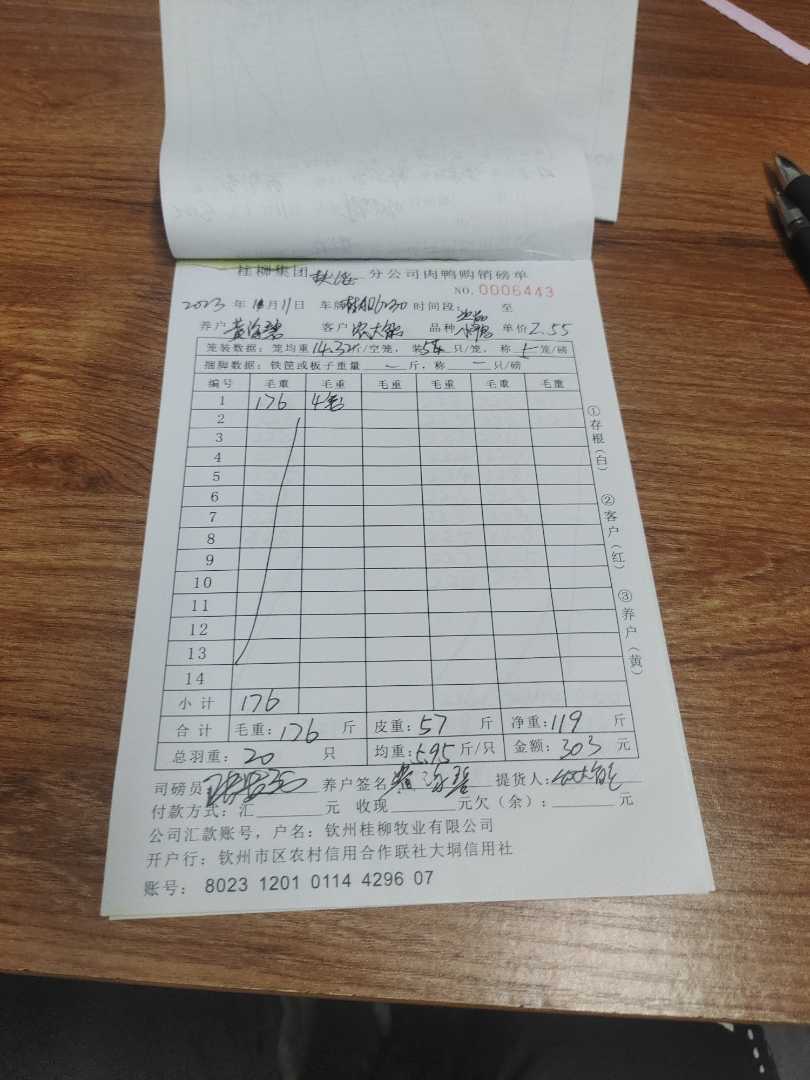 桂柳集团 钦州 分公司肉鸭购销磅单
NO. 0006443
2023 年 月 11 日 车牌 时间段: 至
养户 客户 农大 品种 单价 2.55
笼装数据: 笼均重 14.32 斤/空笼, 装 只/笼, 称 笼/磅
捆脚数据: 铁筐或板子重量 斤, 称 只/磅
编号 毛重 毛重 毛重 毛重 毛重 毛重
1 176 4笼
2
3
4
5
6
7
8
9
10
11
12
13
14
小计 176
合计 毛重: 176 斤 皮重: 57 斤 净重: 119 斤
总羽重: 20 只 均重: 5.95 斤/只 金额: 303 元
司磅员 养户签名 提货人:
付款方式: 汇 元 收现 元欠(余): 元
公司汇款账号, 户名: 钦州桂柳牧业有限公司
开户行: 钦州市区农村信用合作联社大垌信用社
账号: 8023 1201 0114 4296 07
①存根(白)
②客户(红)
③养户(黄)